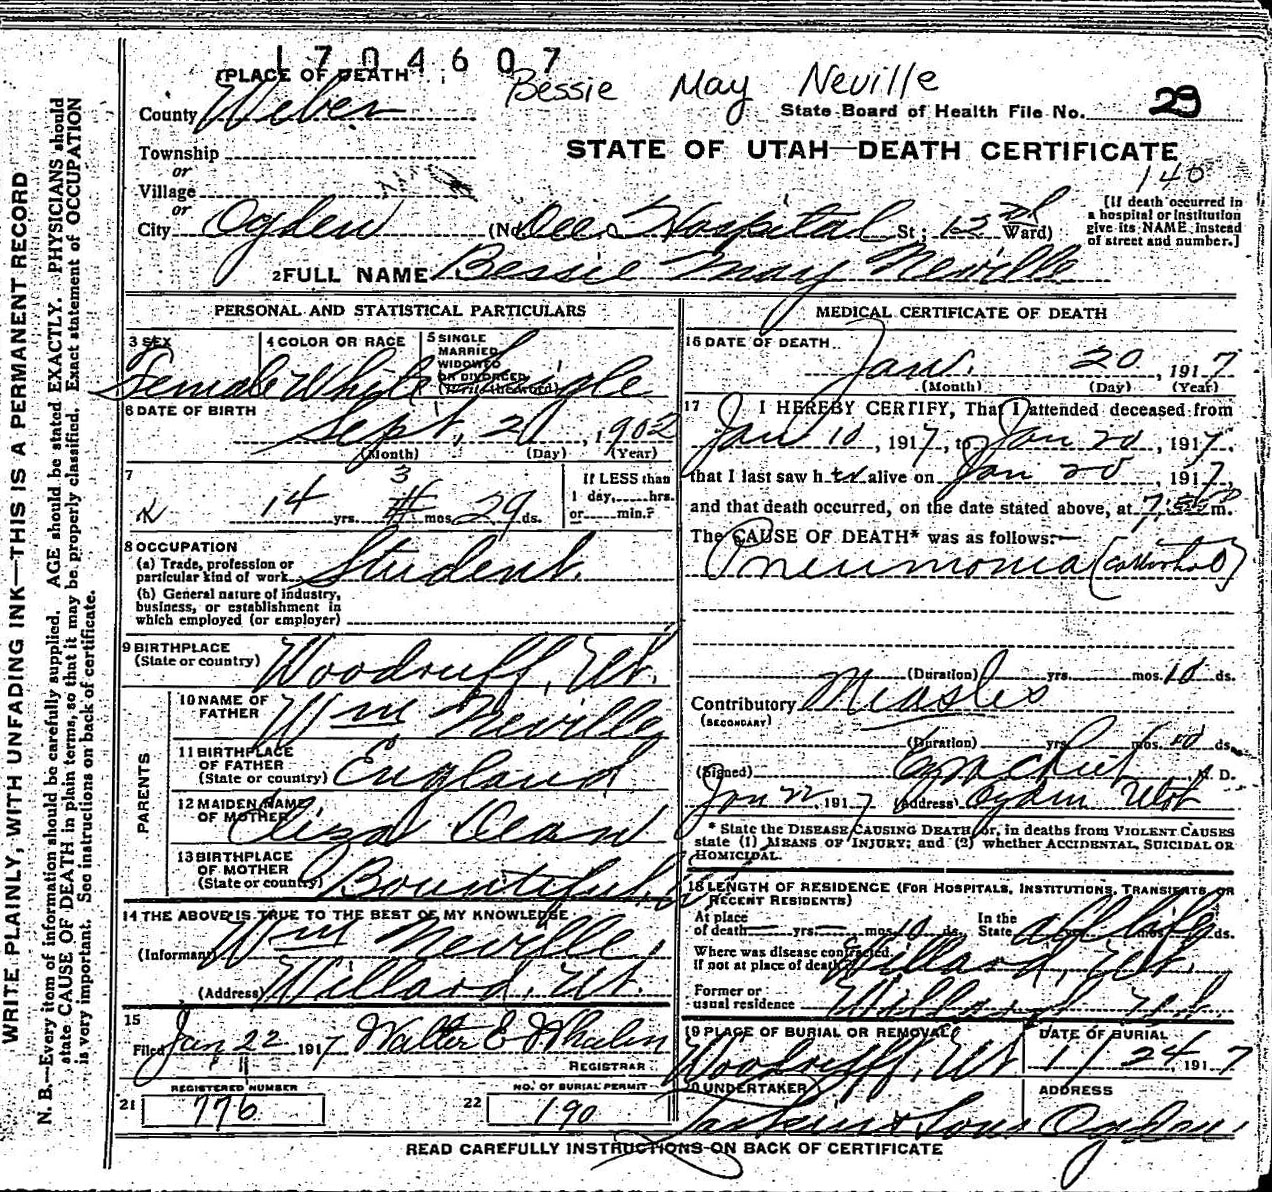 1704607
Bessie May Neville
PLACE OF DEATH
County Weber
State Board of Health File No. 29
Township
STATE OF UTAH—DEATH CERTIFICATE
or
140
Village
or
City Ogden (No. Dee Hospital St; Ward)
[If death occurred in a hospital or institution give its NAME instead of street and number.]
2 FULL NAME Bessie May Neville
PERSONAL AND STATISTICAL PARTICULARS
3 SEX Female
4 COLOR OR RACE White
5 SINGLE MARRIED WIDOWED OR DIVORCED (Write the word) Single
6 DATE OF BIRTH
Sept. 20, 1902
(Month) (Day) (Year)
7
14 yrs. 3 mos. 29 ds.
If LESS than 1 day, hrs. or min.?
8 OCCUPATION
(a) Trade, profession or particular kind of work Student.
(b) General nature of industry, business, or establishment in which employed (or employer)
9 BIRTHPLACE
(State or country) Woodruff, Ut.
PARENTS
10 NAME OF FATHER Wm Neville
11 BIRTHPLACE OF FATHER (State or country) England
12 MAIDEN NAME OF MOTHER Eliza Dean
13 BIRTHPLACE OF MOTHER (State or country) Bountiful, Ut
14 THE ABOVE IS TRUE TO THE BEST OF MY KNOWLEDGE
(Informant) Wm Neville,
(Address) Willard, Ut.
15
Filed Jan 22 1917 Walter E Whalen
REGISTRAR
REGISTERED NUMBER
21 776
NO. OF BURIAL PERMIT
22 190
MEDICAL CERTIFICATE OF DEATH
16 DATE OF DEATH
Jan. 20, 1917
(Month) (Day) (Year)
17 I HEREBY CERTIFY, That I attended deceased from
Jan 10, 1917, to Jan 20, 1917,
that I last saw her alive on Jan 20, 1917,
and that death occurred, on the date stated above, at 7: m.
The CAUSE OF DEATH* was as follows:—
Pneumonia (catarrhal)
(Duration) yrs. mos. 10 ds.
Contributory Measles
(SECONDARY)
(Duration) yrs. mos. 10 ds.
(Signed) M. D.
Jan 22, 1917 (Address) Ogden Utah
* State the DISEASE CAUSING DEATH, or, in deaths from VIOLENT CAUSES
state (1) MEANS OF INJURY; and (2) whether ACCIDENTAL, SUICIDAL OR
HOMICIDAL.
18 LENGTH OF RESIDENCE (FOR HOSPITALS, INSTITUTIONS, TRANSIENTS, OR RECENT RESIDENTS)
At place of death yrs. mos. 10 ds. In the State all life mos. ds.
Where was disease contracted, if not at place of death? Willard, Ut.
Former or usual residence Willard Ut
19 PLACE OF BURIAL OR REMOVAL
Woodruff, Ut
DATE OF BURIAL
1/24 1917
20 UNDERTAKER
Larkin & Sons
ADDRESS
Ogden,
READ CAREFULLY INSTRUCTIONS ON BACK OF CERTIFICATE
WRITE PLAINLY, WITH UNFADING INK—THIS IS A PERMANENT RECORD
N. B.—Every item of information should be carefully supplied. AGE should be stated EXACTLY. PHYSICIANS should
state CAUSE OF DEATH in plain terms, so that it may be properly classified. Exact statement of OCCUPATION
is very important. See instructions on back of certificate.